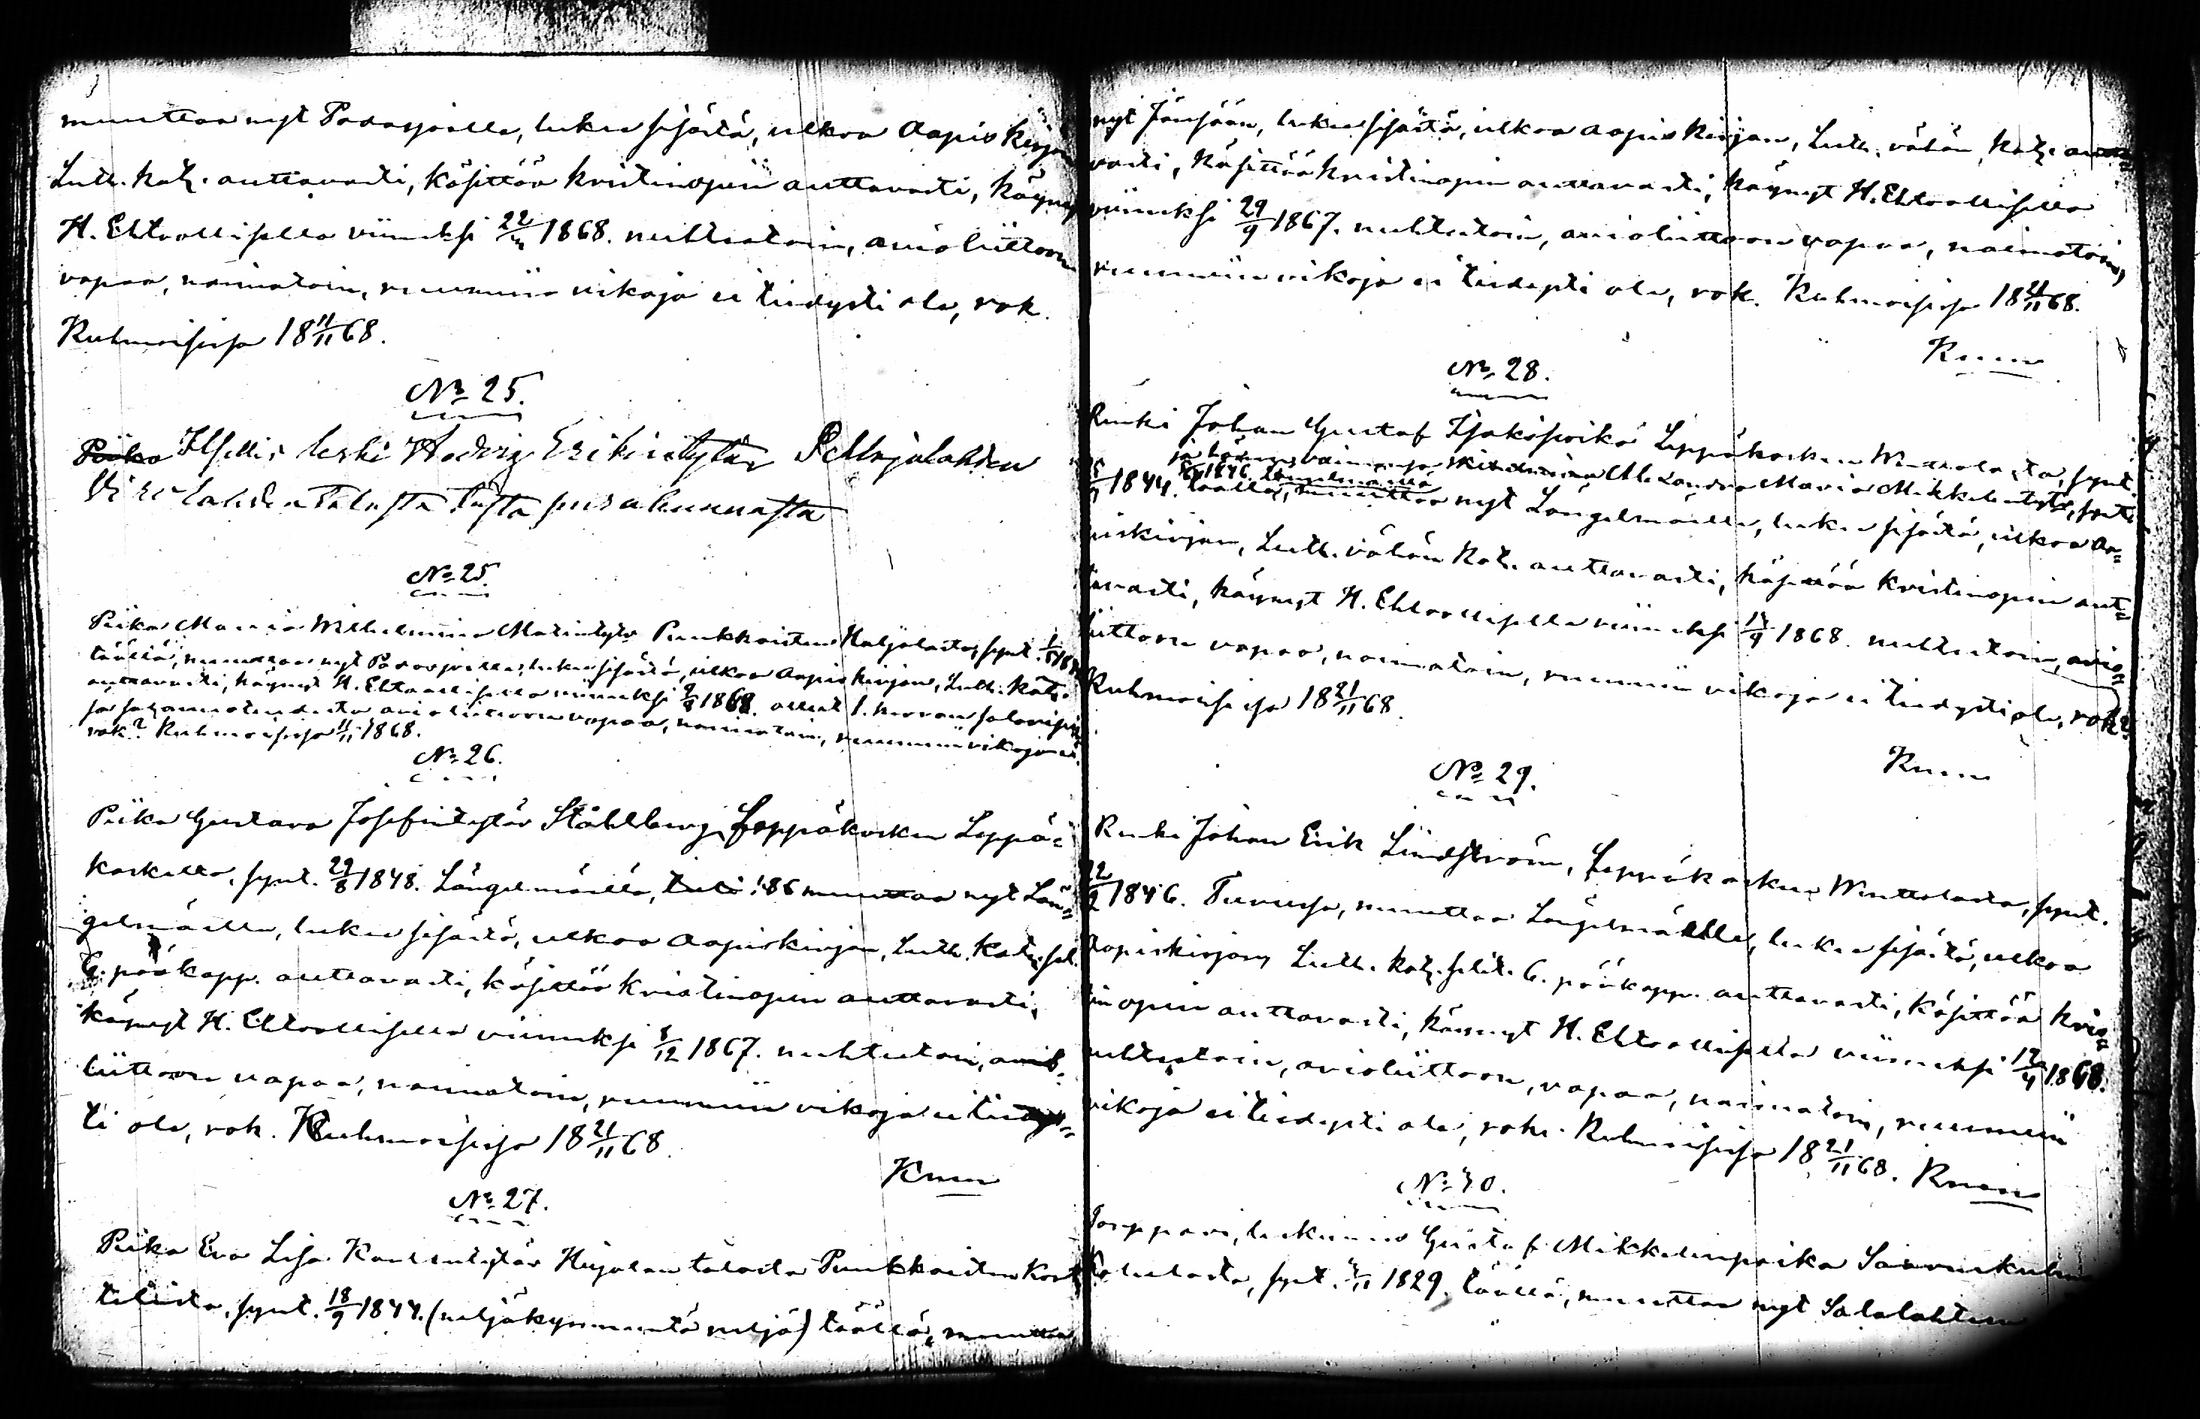 muuttaa nyt Padasjoelle, lukee sisästä, ulkoa Aapis kirjan
Luth. Katz. auttavasti, käsittää kristinopin auttavasti, käynyt
H. Ehtoollisella viimeksi 22/4 1868. nuhteetoin, avioliittoon
vapaa, naimatoin, ruumiin vikoja ei tiedysti ole, tok.
Kuhmoisissa 18 11/11 68.
No 25.
Piika Itsellis leski Hedvig Erikintytär Pihlajalahden
talosta tästä pitäjäkunnasta
No 25.
Piika Maria Wilhelmina Matintytär Puukkoisten Haljalasta, synt.
täällä, muuttaa nyt Padasjoelle, lukee sisästä, ulkoa Aapis kirjan, Luth. Katz.
auttavasti, käynyt H. Ehtoollisella viimeksi 1868. ollut 1. kerran salavuoteudessa
ja avioliittoon vapaa, naimatoin, ruumiin vikoja ei
tok? Kuhmoisissa 11/11 1868.
No 26.
Piika Gustava Josefintytär Ståhlberg, Leppäkosken Leppä-
koskella, synt. 29/8 1848. Längelmäellä, tuli 186 muuttaa nyt Län-
gelmäelle, lukee sisästä, ulkoa Aapiskirjan, Luth. Katz. sel.
6. pääkapp. auttavasti, käsittää kristinopin auttavasti,
käynyt H. Ehtoollisella viimeksi 8/12 1867. nuhteetoin, avio-
liittoon vapaa, naimatoin, ruumiin vikoja ei tiedys-
ti ole, tok. Kuhmoisissa 18 21/11 68.
No 27.
Piika Eva Lisa Kaarlentytär Hujalan talosta Puukkoisten
synt. 18/9 1844. (neljäkymmentä neljä) täällä, muuttaa
nyt Jämsään, lukee sisästä, ulkoa Aapis kirjan, Luth. vähän Katz. autta-
vasti, käsittää kristinopin auttavasti, käynyt H. Ehtoollisella
viimeksi 29/9 1867. nuhteetoin, avioliittoon vapaa, naimatoin,
ruumiin vikoja ei tiedysti ole, tok. Kuhmoisissa 18 21/11 68.
No 28.
Renki Johan Gustaf Isakinpoika Leppäkosken Wuttolasta, synt.
ja hänen vaimonsa Aleksandra Maria Mikkelintytär, synt.
1844. täällä, muuttaa nyt Längelmäelle, lukee sisästä, ulkoa Aa-
piskirjan, Luth. vähän Kat. auttavasti, käsittää kristinopin aut-
tavasti, käynyt H. Ehtoollisella viimeksi 1868. nuhteetoin, avio-
liittoon vapaa, naimatoin, ruumiin vikoja ei tiedysti ole, tok?
Kuhmoisissa 18 21/11 68.
No 29.
Renki Johan Erik Lindström, Leppäkosken Wuttolasta, synt.
22/2 1846. Turussa, muuttaa Längelmäelle, lukee sisästä, ulkoa
Aapiskirjan, Luth. Katz. selit. 6. pääkapp. auttavasti, käsittää kris-
tinopin auttavasti, käynyt H. Ehtoollisella viimeksi 12/4 1868.
nuhteetoin, avioliittoon, vapaa, naimatoin, ruumiin
vikoja ei tiedysti ole, tok. Kuhmoisissa 18 21/11 68.
No 30.
Torppari, leskimies Gustaf Mikkelinpoika
synt. 1829. täällä, muuttaa nyt